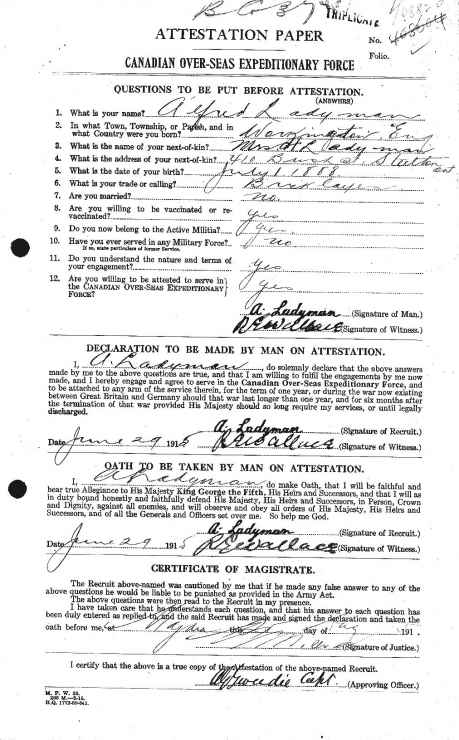 TRIPLICATE
ATTESTATION PAPER
No.
CANADIAN OVER-SEAS EXPEDITIONARY FORCE
Folio.
QUESTIONS TO BE PUT BEFORE ATTESTATION.
(ANSWERS)
1. What is your name? Alfred Ladyman
2. In what Town, Township, or Parish, and in
what Country were you born? Eng
3. What is the name of your next-of-kin? Ladyman
4. What is the address of your next-of-kin?
5. What is the date of your birth? July 1, 1888
6. What is your trade or calling? Bricklayer
7. Are you married? no.
8. Are you willing to be vaccinated or re-
vaccinated? yes
9. Do you now belong to the Active Militia? yes.
10. Have you ever served in any Military Force? no
If so, state particulars of former Service.
11. Do you understand the nature and terms of
your engagement? yes
12. Are you willing to be attested to serve in
the CANADIAN OVER-SEAS EXPEDITIONARY
FORCE? yes
A. Ladyman (Signature of Man.)
R E Wallace (Signature of Witness.)
DECLARATION TO BE MADE BY MAN ON ATTESTATION.
I, A. Ladyman, do solemnly declare that the above answers
made by me to the above questions are true, and that I am willing to fulfil the engagements by me now
made, and I hereby engage and agree to serve in the Canadian Over-Seas Expeditionary Force, and
to be attached to any arm of the service therein, for the term of one year, or during the war now existing
between Great Britain and Germany should that war last longer than one year, and for six months after
the termination of that war provided His Majesty should so long require my services, or until legally
discharged.
A. Ladyman (Signature of Recruit.)
Date June 29 1915 R E Wallace (Signature of Witness.)
OATH TO BE TAKEN BY MAN ON ATTESTATION.
I, A Ladyman, do make Oath, that I will be faithful and
bear true Allegiance to His Majesty King George the Fifth, His Heirs and Successors, and that I will as
in duty bound honestly and faithfully defend His Majesty, His Heirs and Successors, in Person, Crown
and Dignity, against all enemies, and will observe and obey all orders of His Majesty, His Heirs and
Successors, and of all the Generals and Officers set over me. So help me God.
A. Ladyman (Signature of Recruit.)
Date June 29 1915 R E Wallace (Signature of Witness.)
CERTIFICATE OF MAGISTRATE.
The Recruit above-named was cautioned by me that if he made any false answer to any of the
above questions he would be liable to be punished as provided in the Army Act.
The above questions were then read to the Recruit in my presence.
I have taken care that he understands each question, and that his answer to each question has
been duly entered as replied to, and the said Recruit has made and signed the declaration and taken the
oath before me, at this day of 191
(Signature of Justice.)
I certify that the above is a true copy of the Attestation of the above-named Recruit.
Capt. (Approving Officer.)
M. F. W. 23.
200 M.—5-15.
H.Q. 1772-39-841.